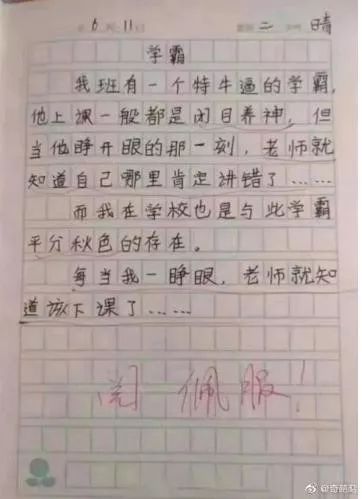 6月11日 二 晴
学霸
我班有一个特牛逼的学霸，
他上课一般都是闭目养神，但
当他睁开眼的那一刻，老师就
知道自己哪里肯定讲错了……
而我在学校也是与此学霸
平分秋色的存在。
每当我一睁眼，老师就知
道该下课了……
阅 佩服！
@奇葩菇